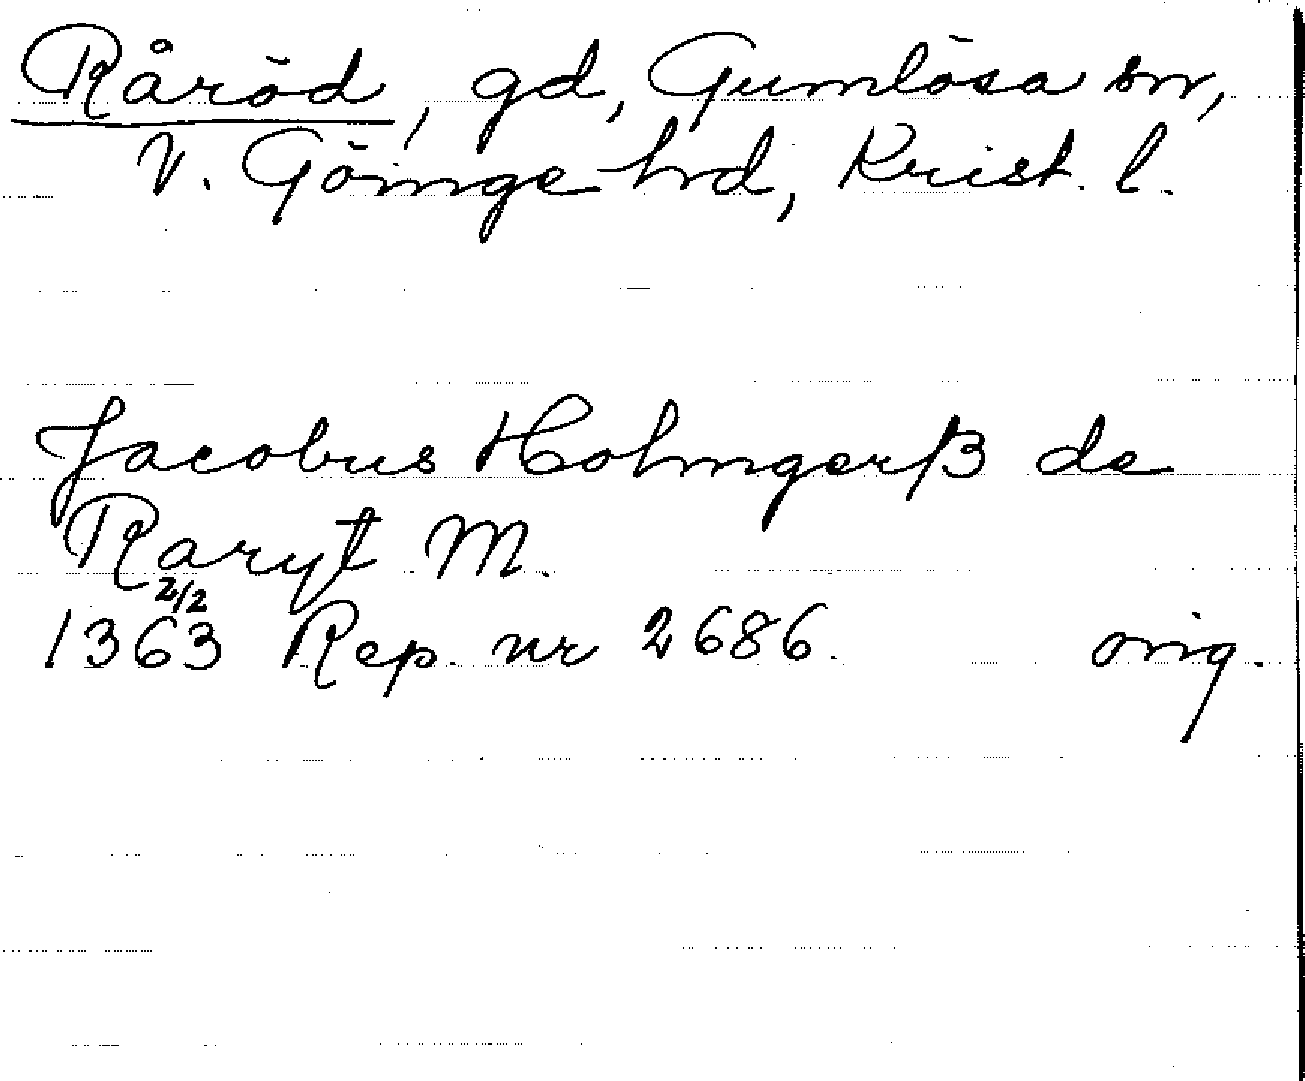 Råröd, gd, Gumlösa sn,
V. Göinge hd, Krist. l.
Jacobus Holmgerß de
Raryt M.
1363 2/2 Rep. nr 2686. orig.